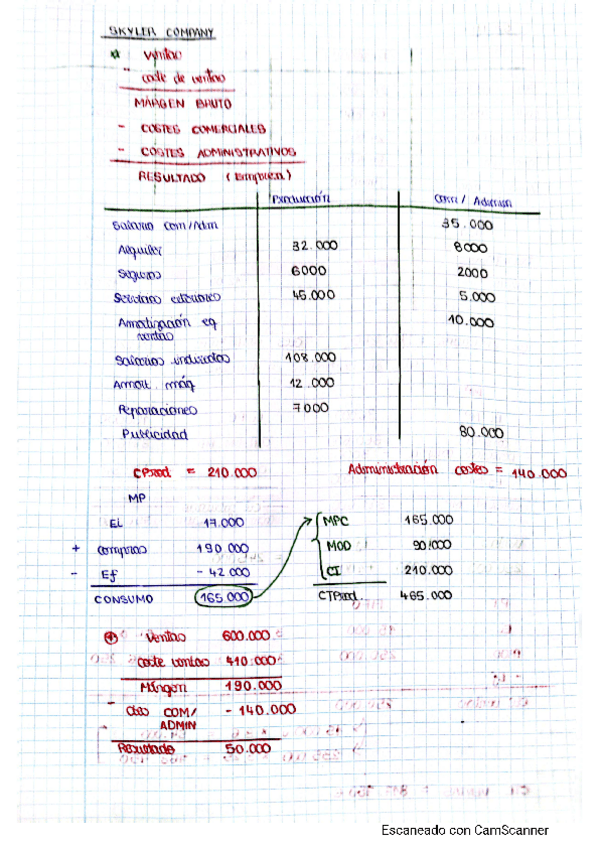 SKYLER COMPANY
ventas
- coste de ventas
MÁRGEN BRUTO
- COSTES COMERCIALES
- COSTES ADMINISTRATIVOS
RESULTADO (Empresa)
Producción Com / Admon
Salario com/Adm 35.000
Alquiler 32.000 8000
Seguros 6000 2000
Servicios exteriores 45.000 5.000
Amortización eq 10.000
ventas
Salarios indirectos 108.000
Amort. máq 12.000
Reparaciones 7000
Publicidad 80.000
CProd = 210.000 Administración costes = 140.000
MP
EI 17.000 MPC 165.000
+ compras 190.000 MOD 90.000
- Ef - 42.000 CI 210.000
CONSUMO 165.000 CTProd. 465.000
+ Ventas 600.000
coste ventas 410.000
Márgen 190.000
- COM/ - 140.000
ADMIN
Resultado 50.000
Escaneado con CamScanner